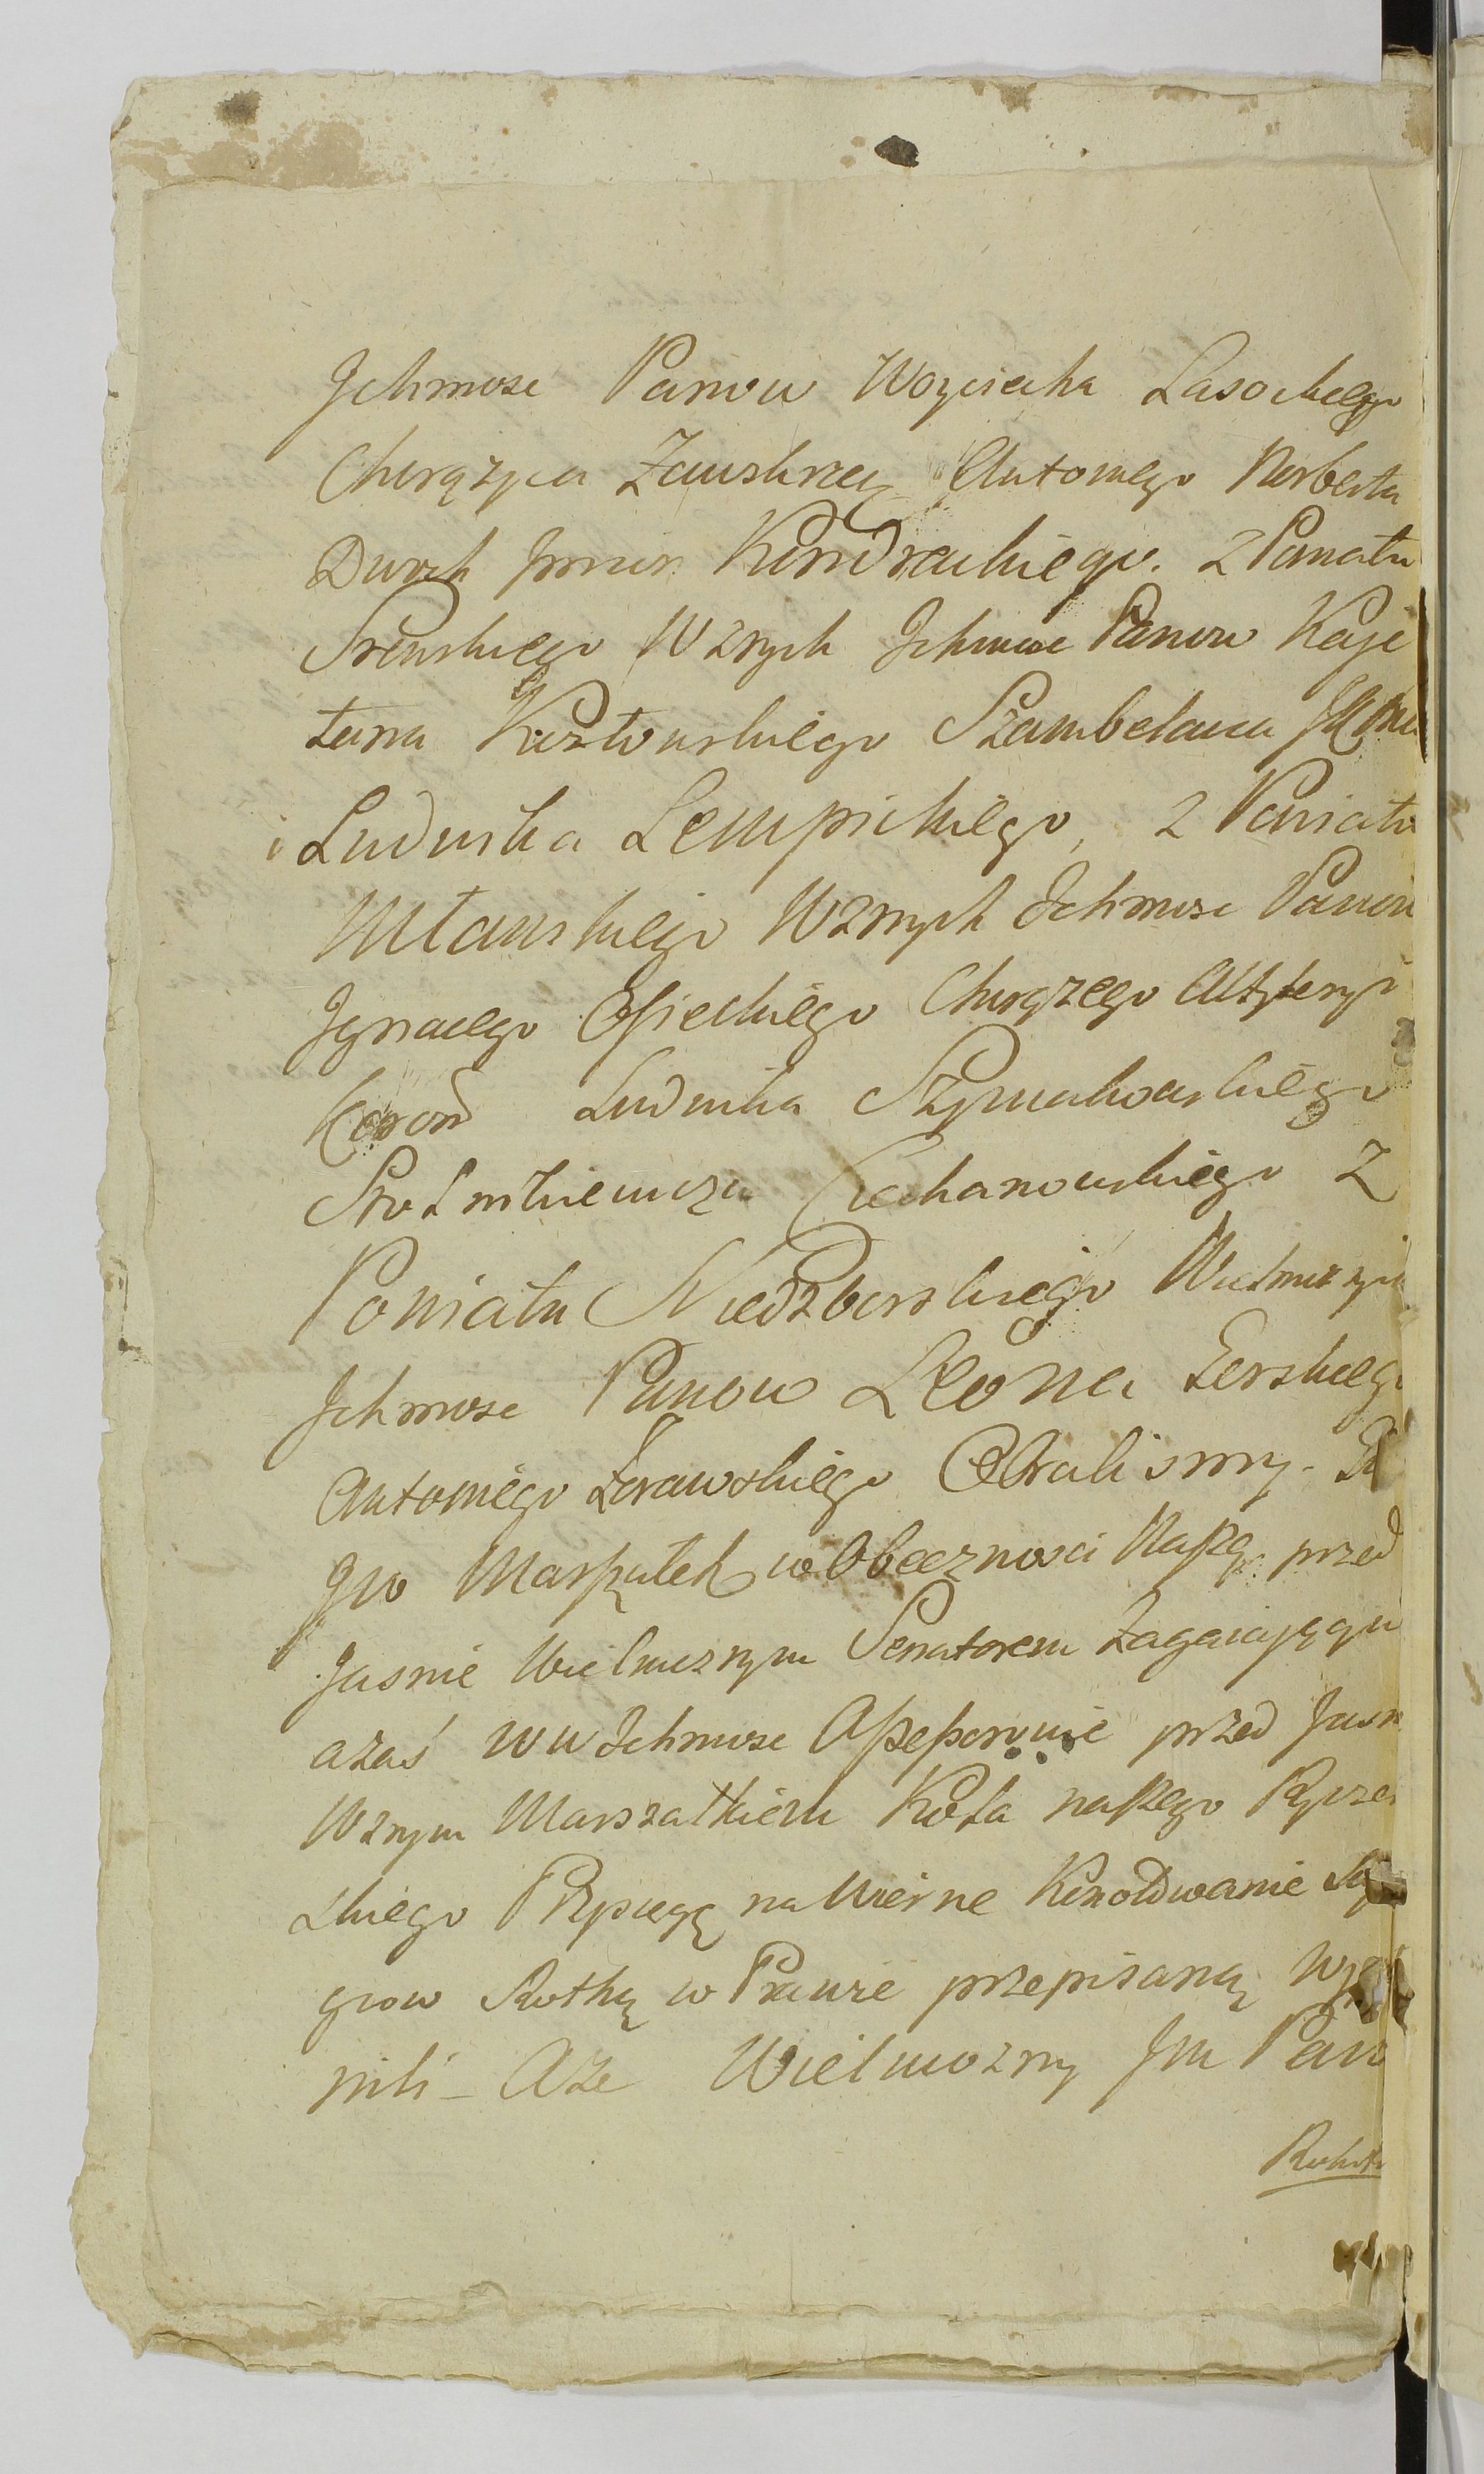 Jchmosc Panow Woyciecha Lasockiego
Chorązyca Zawskrzeg Antoniego Norberta
Dwoch Jmion Kendrackiego. z Powiatu
Srenskiego Wznych Jchmosc Panow Kaje
tana Kozłowskiego Szambelana JK
i Ludwika Lempickiego, z Powiatu
Mławskiego Wznych Jchmosc Panow
Jgnacego Ossieckiego Chorązego Artyleryi
Koron Ludwika Szymakowskiego
Stolnikiewicza Ciechanowskiego Z
Powiatu Niedzborskiego Wielmoznych
Jchmosc Panow Leona Zerskiego
Antoniego Zorawskiego Obralismy.
Jw Marszałek w Obecznosci Naszey przed
Jasnie Wielmoznym Senatorem Zagaiającym
azaś WW Jchmosc Assessorowie przed Jasn
Wznym Marszałkiem Koła naszego Rycer
skiego Przysiegę na Wierne Konotowanie
gow Rothą w Prawie przepisaną Wyp
nili – Aze Wielmozny Jm Pan